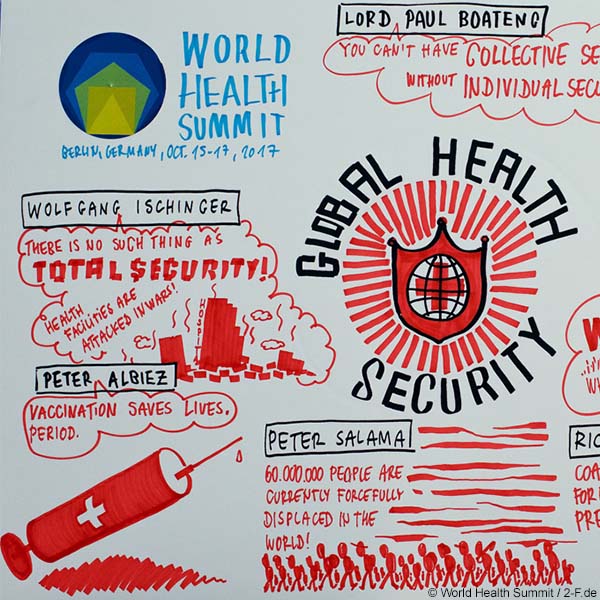 LORD PAUL BOATENG
YOU CAN'T HAVE COLLECTIVE SE
WITHOUT INDIVIDUAL SECU
WORLD
HEALTH
SUMMIT
BERLIN, GERMANY, OCT. 15-17, 2017
GLOBAL HEALTH
SECURITY
WOLFGANG ISCHINGER
THERE IS NO SUCH THING AS
TOTAL SECURITY!
HEALTH
FACILITIES ARE
ATTACKED IN WARS!
HOSPIT
PETER ALBIEZ
VACCINATION SAVES LIVES.
PERIOD.
PETER SALAMA
60.000.000 PEOPLE ARE
CURRENTLY FORCEFULLY
DISPLACED IN THE
WORLD!
W
WH
RIC
COA
FOR
PRE
© World Health Summit / 2-F.de